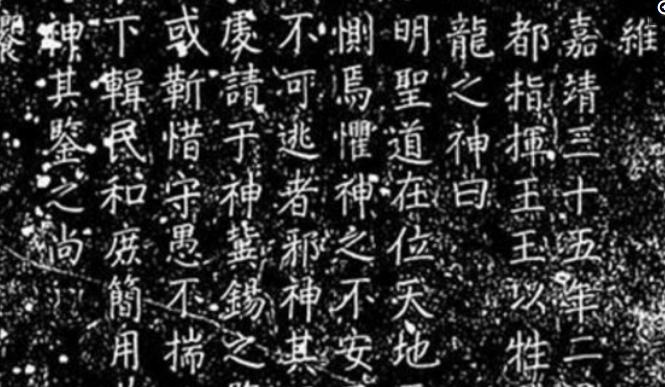 維
嘉靖三十五年二
都指揮王王以牲
龍之神曰
明聖道在位天地
惻焉懼神之不安
不可逃者邪神其
虔請于神冀錫之
或靳惜守愚不揣
下輯民和庶簡用
神其鑒之尚
饗